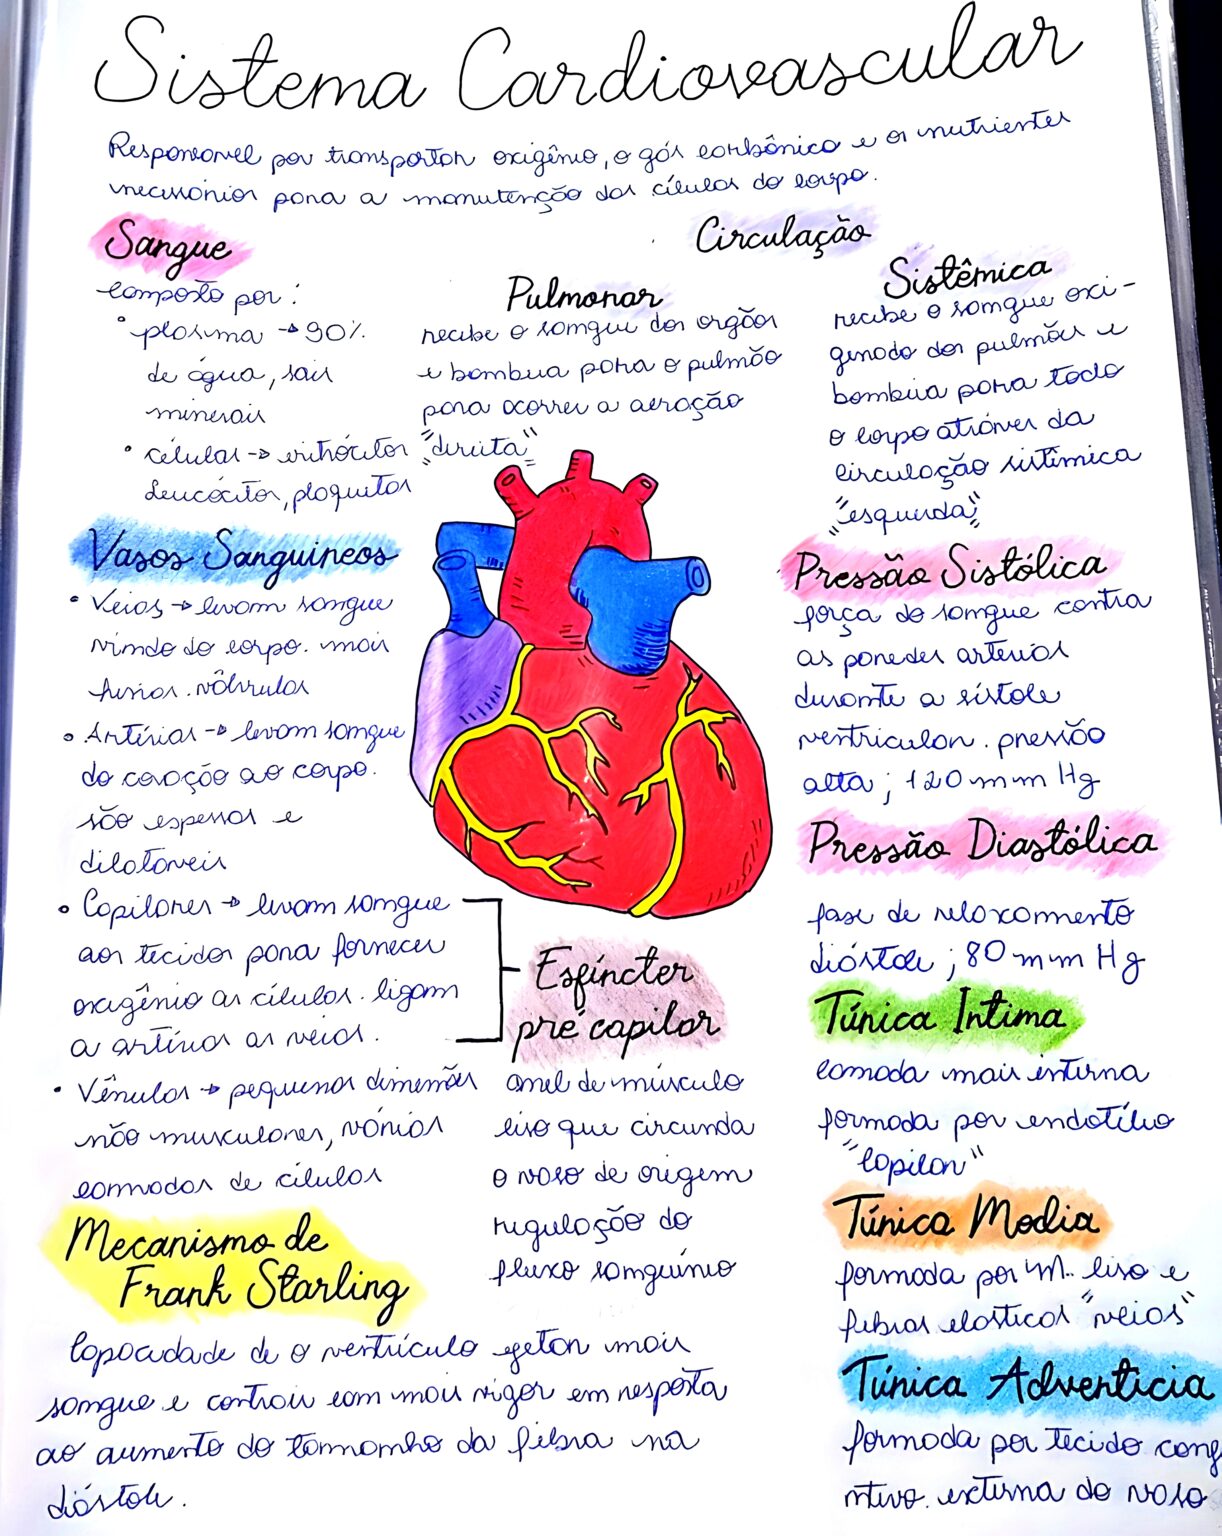 Sistema Cardiovascular
Responsável por transportar oxigênio, o gás carbônico e os nutrientes
necessários para a manutenção das células do corpo.
Sangue
composto por:
• plasma → 90%
de água, sais
minerais
• células → eritrócitos
leucócitos, plaquetas
Circulação
Pulmonar
recebe o sangue dos orgãos
e bombeia para o pulmão
para ocorrer a aeração
"direita"
Sistêmica
recebe o sangue oxi-
genado dos pulmões e
bombeia para todo
o corpo através da
circulação sistêmica
"esquerda"
Vasos Sanguineos
• Veias → levam sangue
vindo do corpo. mais
finas. válvulas
• Artérias → levam sangue
do coração ao corpo.
são espessas e
dilatáveis
• Capilares → levam sangue
aos tecidos para fornecer
oxigênio as células. ligam
a artérias as veias.
• Vênulas → pequenas dimensões
não musculares, várias
camadas de células
Esfíncter
pré capilar
anel de músculo
liso que circunda
o vaso de origem
regulação do
fluxo sanguíneo
Pressão Sistólica
força do sangue contra
as paredes arterias
durante a sístole
ventricular. pressão
alta; 120 mm Hg
Pressão Diastólica
fase de relaxamento
diástole; 80 mm Hg
Túnica Intima
camada mais interna
formada por endotélio
"capilar"
Túnica Media
formada por M. liso e
fibras elasticas "veias"
Túnica Adventicia
formada por tecido conj
ntivo. externa do vaso
Mecanismo de
Frank Starling
Capacidade de o ventrículo ejetar mais
sangue e contrair com mais vigor em resposta
ao aumento do tamanho da fibra na
diástole.